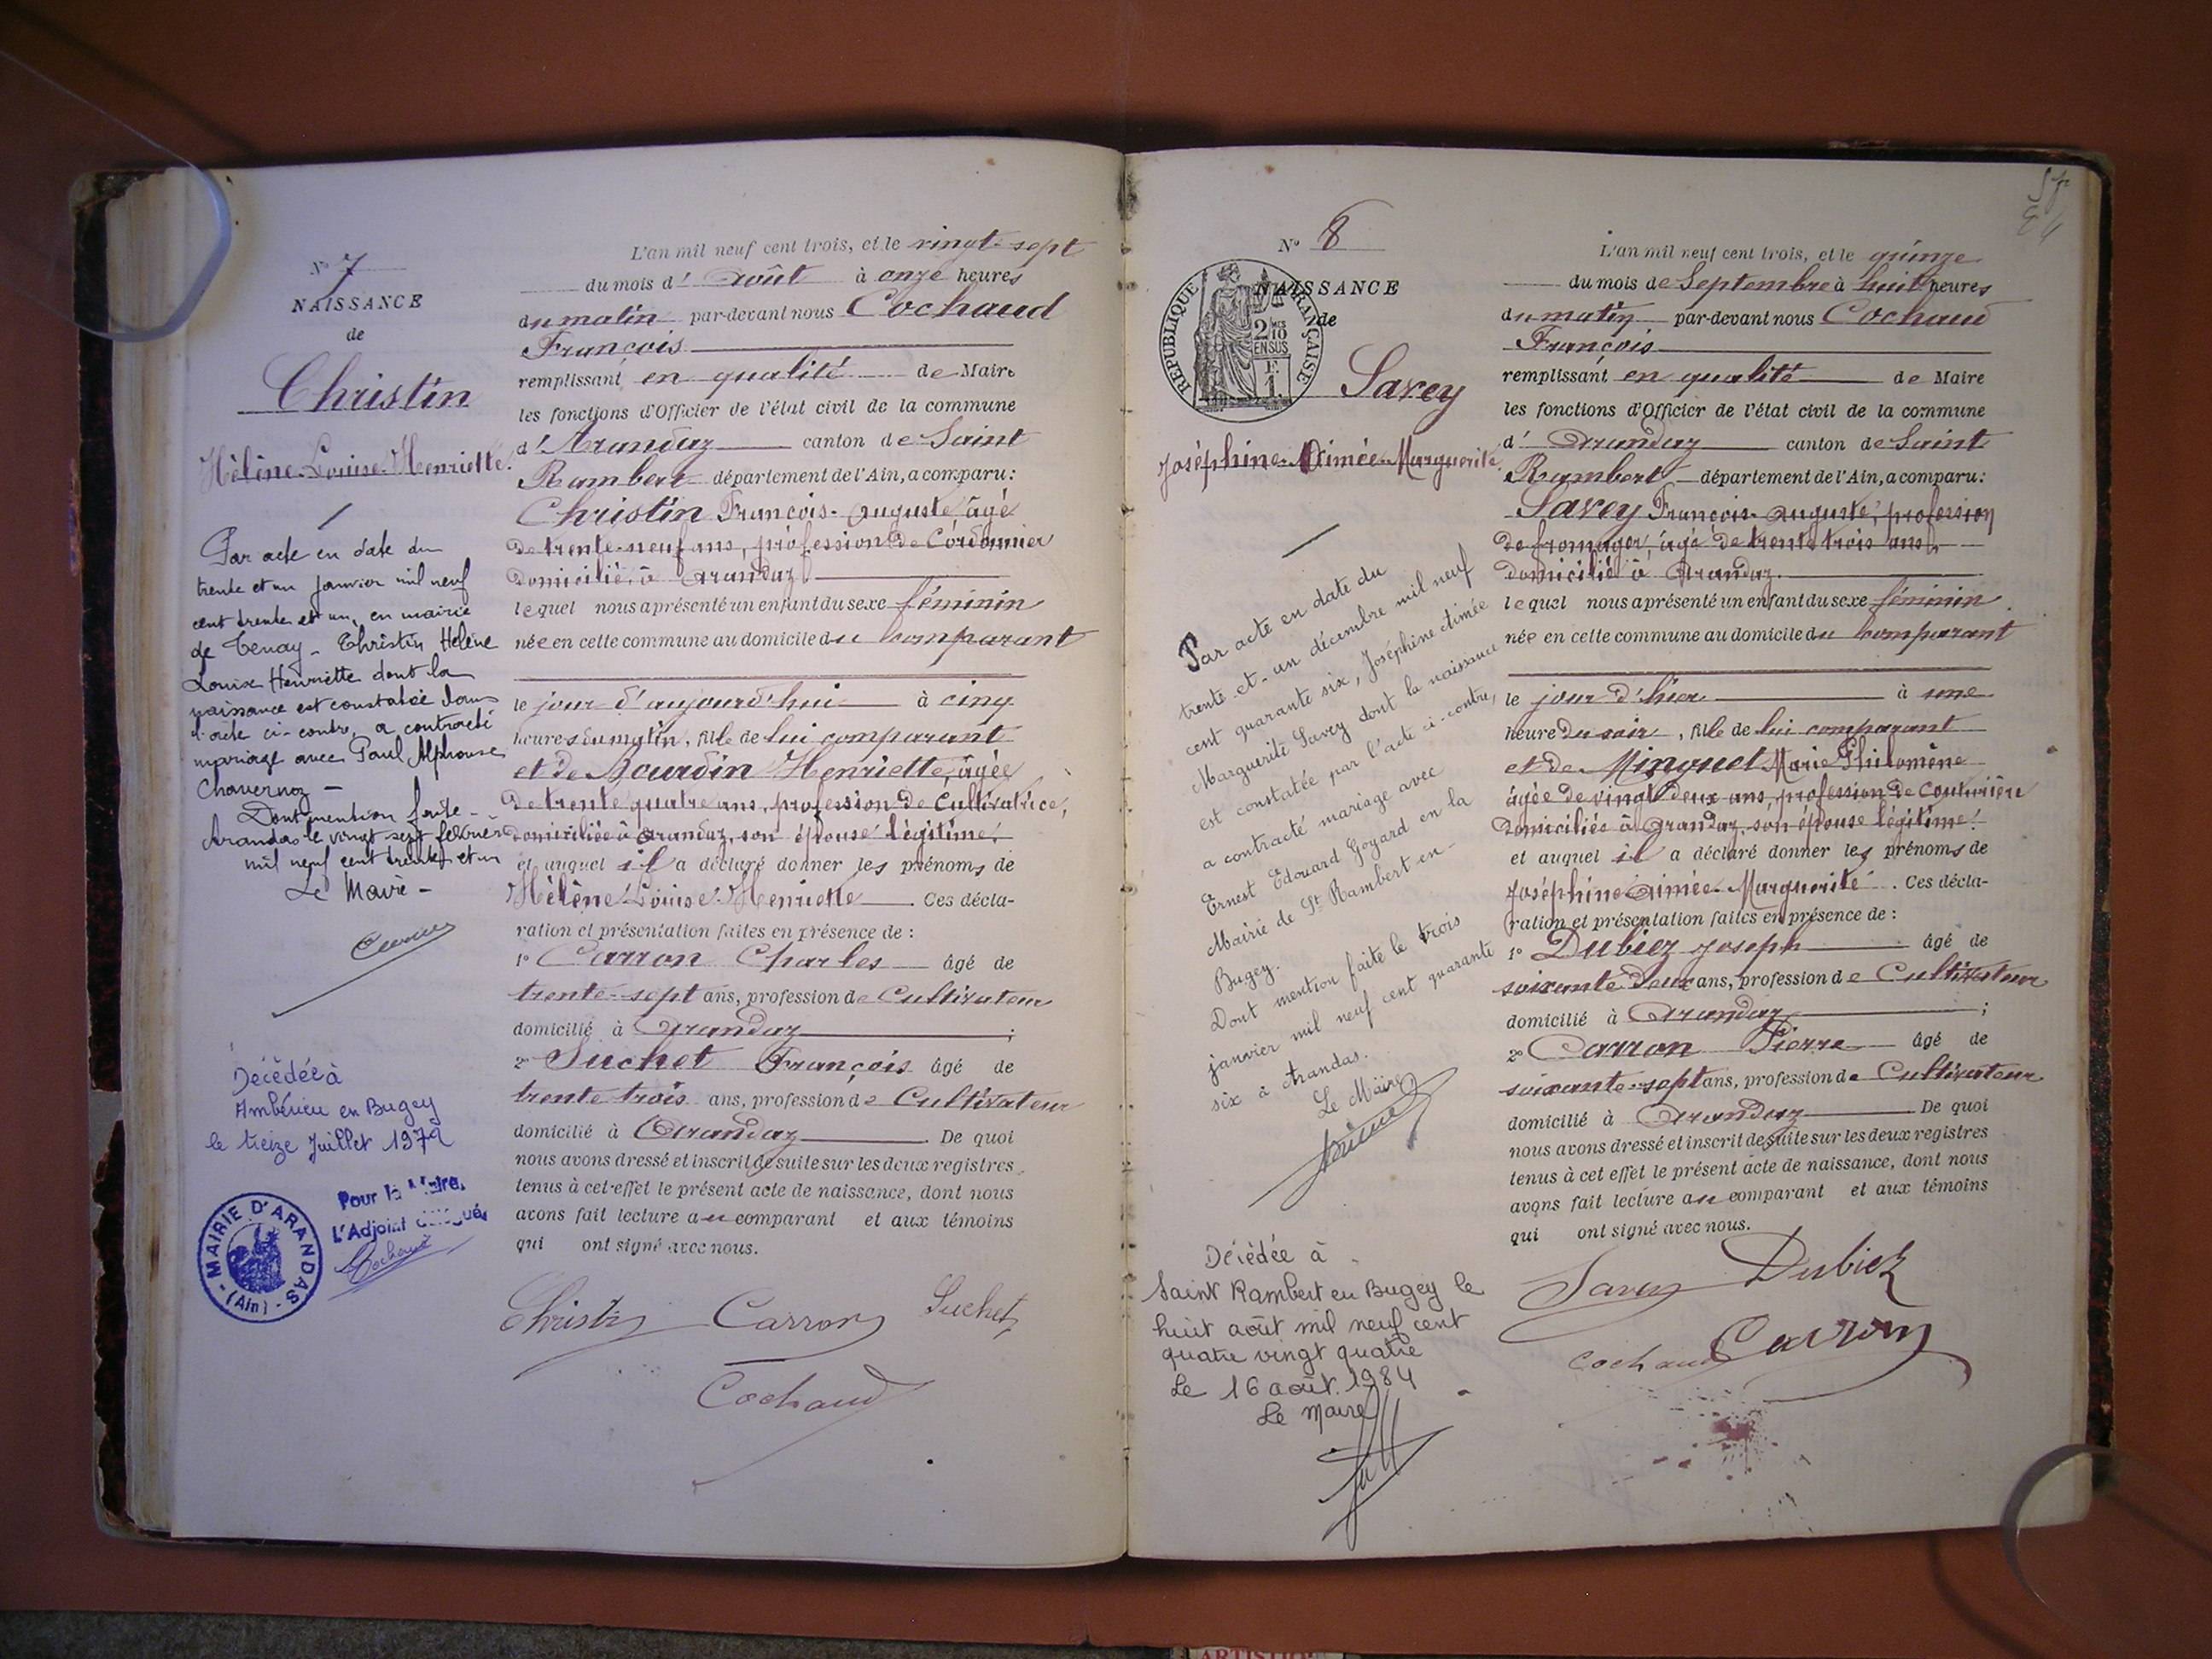 N° 7
NAISSANCE
de
Christin
Hélène-Louise-Henriette.
Par acte en date du
trente et un janvier mil neuf
cent trente et un, en mairie
de Tenay - Christin Hélène
Louise Henriette dont la
naissance est constatée dans
l'acte ci-contre, a contracté
mariage avec Paul Alphonse
Chavernoz -
Dont mention faite -
Arandas le vingt sept février
mil neuf cent trente et un
Le Maire -
Décédée à
Ambérieu en Bugey
le treize Juillet 1979
Pour le Maire,
L'Adjoint délégué,
Cochaud
MAIRIE D'ARANDAS
(Ain)
L'an mil neuf cent trois, et le vingt-sept
du mois d' Août à onze heures
du matin par-devant nous Cochaud
François
remplissant en qualité de Maire
les fonctions d'Officier de l'état civil de la commune
d' Arandaz canton de Saint
Rambert département de l'Ain, a comparu:
Christin François-Auguste, âgé
de trente-neuf ans, profession de Cordonnier
domicilié à Arandaz
lequel nous a présenté un enfant du sexe féminin
née en cette commune au domicile du comparant
le jour d'aujourd'hui à cinq
heures du matin, fille de lui comparant
et de Mourdin Henriette, âgée
de trente quatre ans, profession de Cultivatrice,
domiciliée à Arandaz, son épouse légitime.
et auquel il a déclaré donner les prénoms de
Hélène Louise Henriette. Ces décla-
ration et présentation faites en présence de :
1° Carron Charles âgé de
trente-sept ans, profession de Cultivateur
domicilié à Arandaz ;
2° Suchet François âgé de
trente trois ans, profession de Cultivateur
domicilié à Arandaz. De quoi
nous avons dressé et inscrit de suite sur les deux registres
tenus à cet effet le présent acte de naissance, dont nous
avons fait lecture au comparant et aux témoins
qui ont signé avec nous.
Christin Carron Suchet
Cochaud
N° 8
NAISSANCE
de
REPUBLIQUE FRANÇAISE
2 10 MES
EN SUS
1 F.
Savey
Joséphine-Aimée-Marguerite.
Par acte en date du
trente-et-un décembre mil neuf
cent quarante six, Joséphine Aimée
Marguerite Savey dont la naissance
est constatée par l'acte ci-contre,
a contracté mariage avec
Ernest Edouard Goyard en la
Mairie de St Rambert-en-
Bugey.
Dont mention faite le trois
janvier mil neuf cent quarante
six à Arandas.
Le Maire
Décédée à
Saint Rambert en Bugey le
huit août mil neuf cent
quatre vingt quatre
Le 16 août 1984
Le Maire
L'an mil neuf cent trois, et le quinze
du mois de Septembre à huit heures
du matin par-devant nous Cochaud
François
remplissant en qualité de Maire
les fonctions d'Officier de l'état civil de la commune
d' Arandaz canton de Saint
Rambert département de l'Ain, a comparu:
Savey François-Auguste, profession
de fromager, âgé de trente trois ans,
domicilié à Arandaz.
lequel nous a présenté un enfant du sexe féminin
née en cette commune au domicile du comparant
le jour d'hier à une
heure du soir, fille de lui comparant
et de Minguet Marie Philomène
âgée de vingt deux ans, profession de Couturière
domiciliés à Arandaz, son épouse légitime.
et auquel il a déclaré donner les prénoms de
Joséphine Aimée-Marguerite. Ces décla-
ration et présentation faites en présence de :
1° Dubiez Joseph âgé de
soixante deux ans, profession de Cultivateur
domicilié à Arandaz ;
2° Carron Pierre âgé de
soixante-sept ans, profession de Cultivateur
domicilié à Arandaz. De quoi
nous avons dressé et inscrit de suite sur les deux registres
tenus à cet effet le présent acte de naissance, dont nous
avons fait lecture au comparant et aux témoins
qui ont signé avec nous.
Savey Dubiez
Cochaud Carron